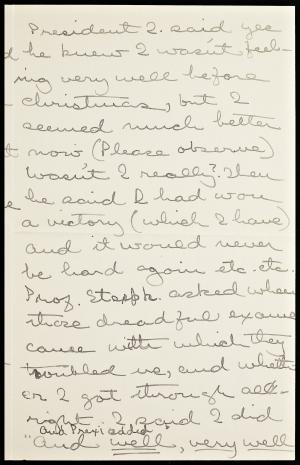 President 2. said yee
he knew I wasn't feel-
ing very well before
Christmas, but I
seemed much better
now (Please observe)
Wasn't I really? Then
he said I had won
a victory (which I have)
and it would never
be hard again etc. etc.
Prof. asked when
those dreadful exams
came with which they
troubled us, and wheth-
er I got through all-
right. I said I did
and Prexi added
"And well, very well